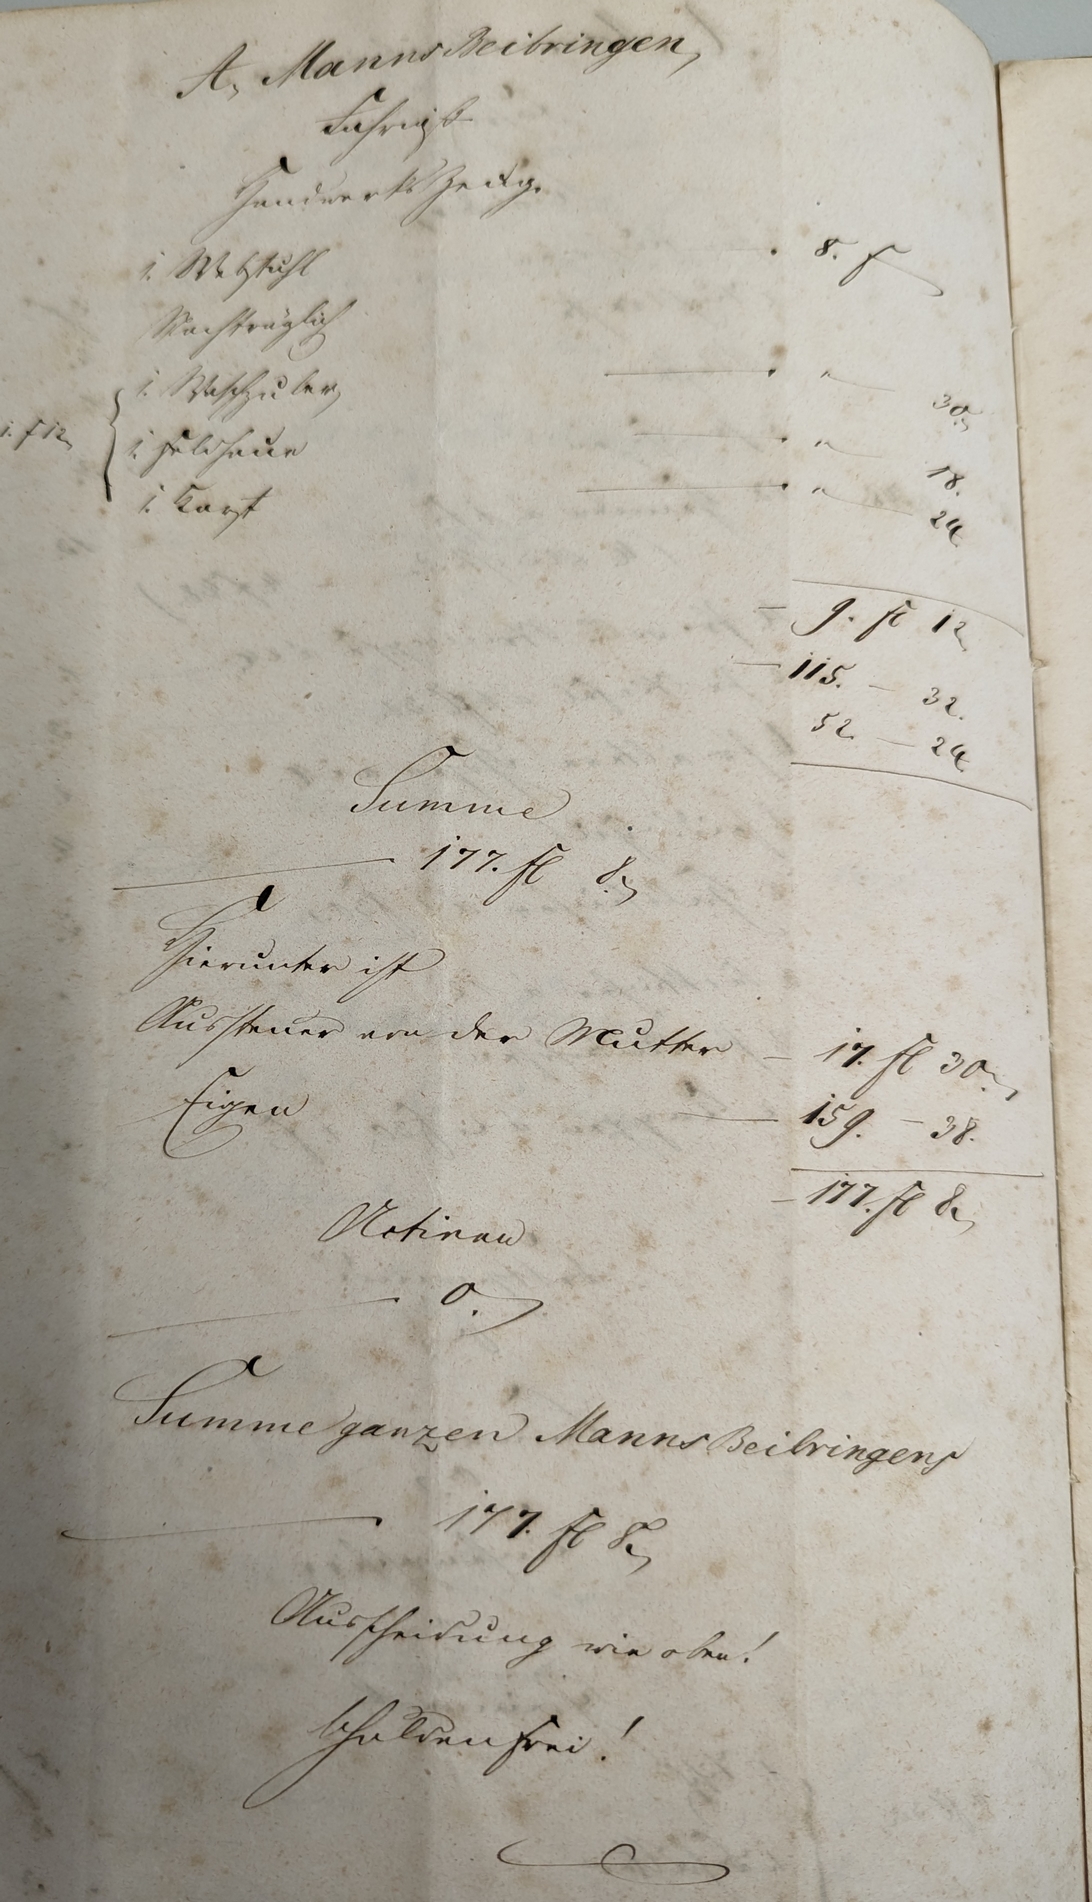 A, Manns Beibringen,
Fahrniß
Handwerks Zeug.
1. Webstuhl . 8. f
Nachträglich
1. Waschzuber, . " 30.
1. f 12. { 1. Feldhaue . " 18.
1. Karst . " 24
— 9. fl 12
— 115. — 32.
52 — 24
Summe
— 177. fl 8.
Hierunter ist
Aussteuer von der Mutter — 17. fl 30.
Eigen — 159. — 38.
— 177. fl 8.
Activen
— 0.
Summe ganzen Manns Beibringens
— 177. fl 8.
Ausscheidung wie oben!
Schuldenfrei!